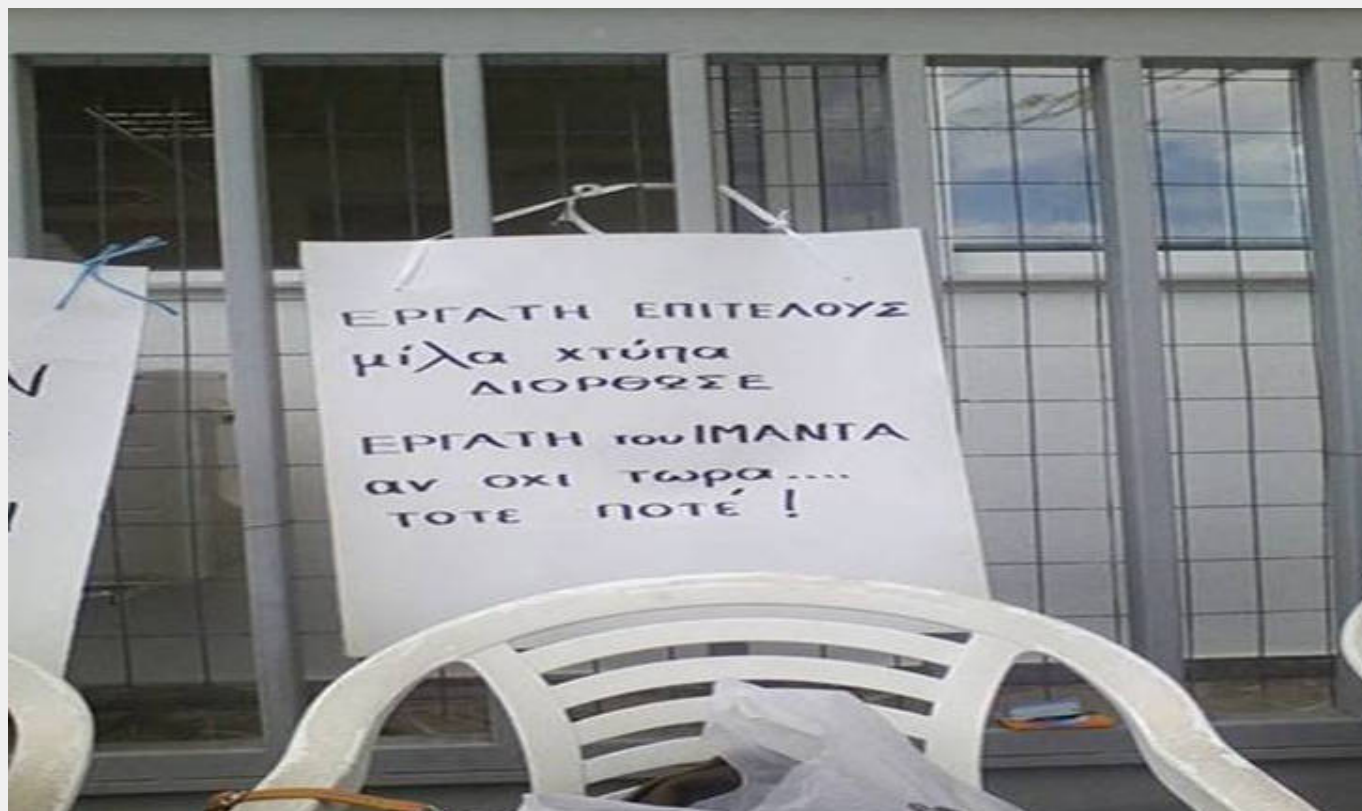 ΕΡΓΑΤΗ ΕΠΙΤΕΛΟΥΣ
μίλα χτύπα
ΔΙΟΡΘΩΣΕ
ΕΡΓΑΤΗ του ΙΜΑΝΤΑ
αν οχι τωρα....
ΤΟΤΕ ΠΟΤΈ !